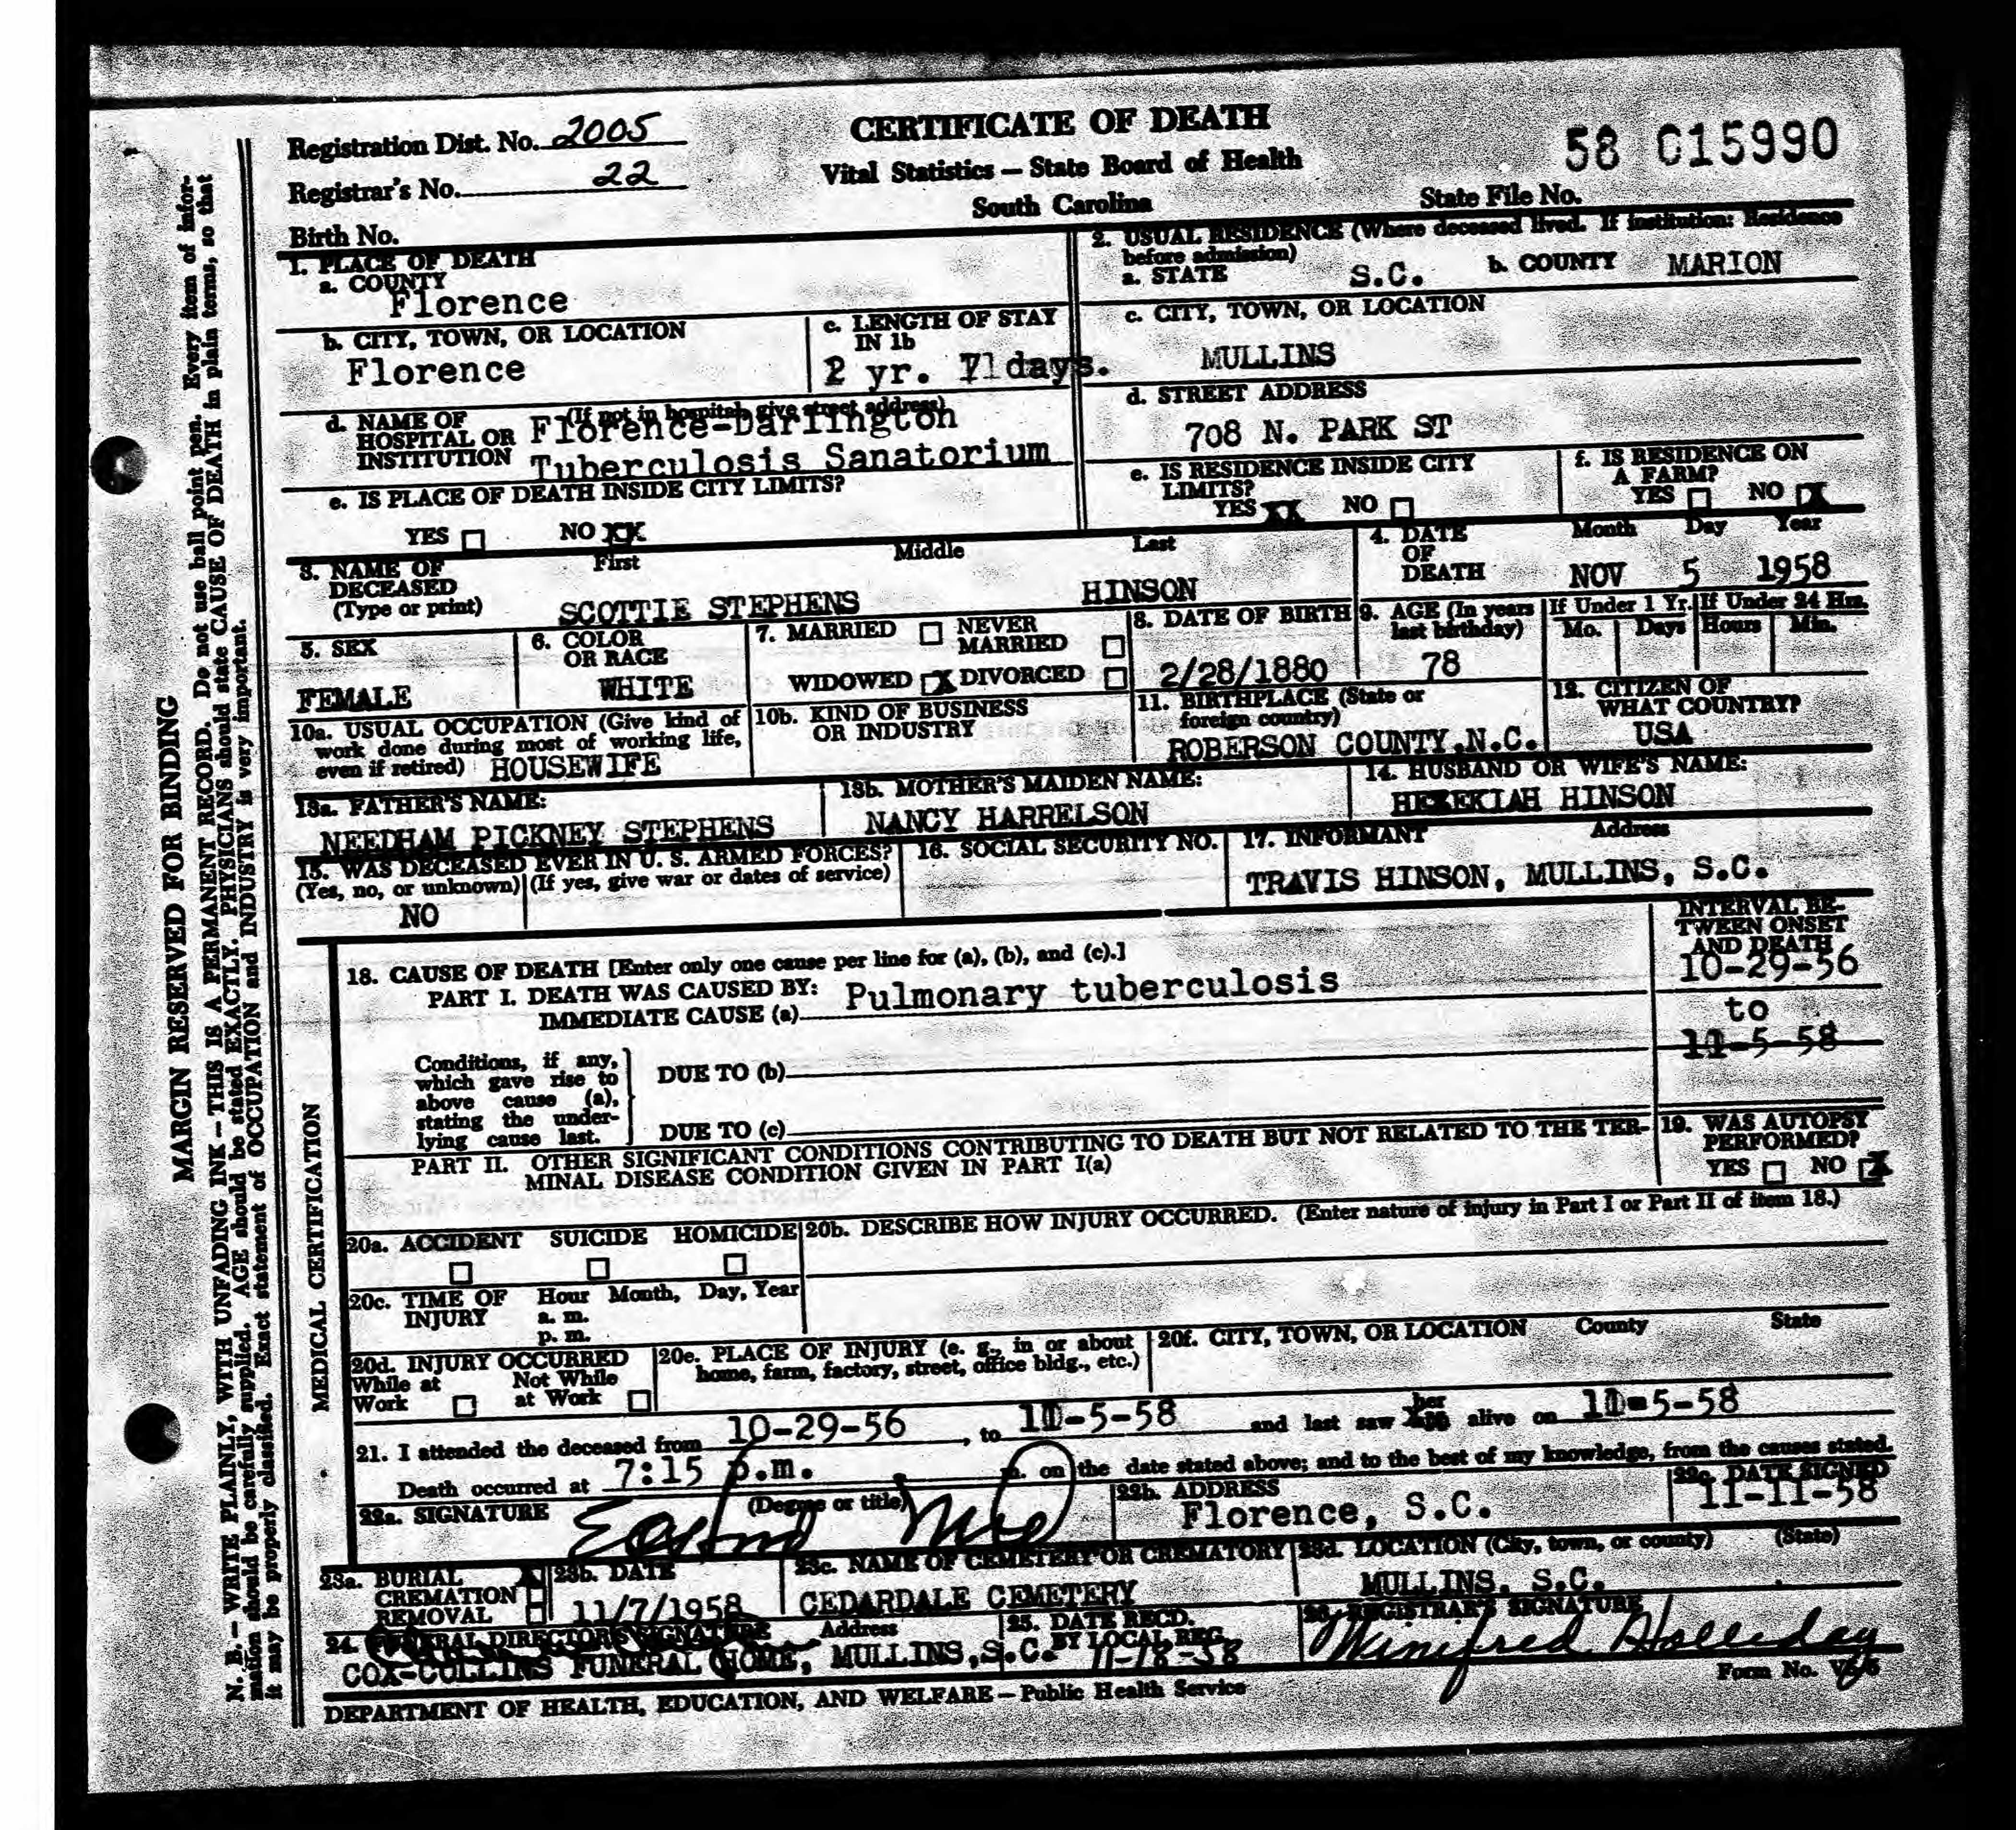 CERTIFICATE OF DEATH
Vital Statistics — State Board of Health
South Carolina
58 015990
State File No.
Registration Dist. No. 2005
Registrar's No. 22
Birth No.
1. PLACE OF DEATH
a. COUNTY
Florence
b. CITY, TOWN, OR LOCATION
Florence
c. LENGTH OF STAY IN 1b
2 yr. 7 days.
d. NAME OF HOSPITAL OR INSTITUTION
(If not in hospital, give street address)
Florence-Darlington
Tuberculosis Sanatorium
e. IS PLACE OF DEATH INSIDE CITY LIMITS?
YES NO XX
2. USUAL RESIDENCE (Where deceased lived. If institution: Residence
before admission)
a. STATE S.C. b. COUNTY MARION
c. CITY, TOWN, OR LOCATION
MULLINS
d. STREET ADDRESS
708 N. PARK ST
e. IS RESIDENCE INSIDE CITY LIMITS?
YES XX NO
f. IS RESIDENCE ON A FARM?
YES NO X
3. NAME OF DECEASED (Type or print)
First Middle Last
SCOTTIE STEPHENS HINSON
4. DATE OF DEATH
Month Day Year
NOV 5 1958
5. SEX
FEMALE
6. COLOR OR RACE
WHITE
7. MARRIED NEVER MARRIED
WIDOWED X DIVORCED
8. DATE OF BIRTH
2/28/1880
9. AGE (In years last birthday)
78
If Under 1 Yr. If Under 24 Hrs.
Mo. Days Hours Min.
10a. USUAL OCCUPATION (Give kind of
work done during most of working life,
even if retired) HOUSEWIFE
10b. KIND OF BUSINESS OR INDUSTRY
11. BIRTHPLACE (State or foreign country)
ROBERSON COUNTY, N.C.
12. CITIZEN OF WHAT COUNTRY?
USA
13a. FATHER'S NAME:
NEEDHAM PICKNEY STEPHENS
13b. MOTHER'S MAIDEN NAME:
NANCY HARRELSON
14. HUSBAND OR WIFE'S NAME:
HEZEKIAH HINSON
15. WAS DECEASED EVER IN U. S. ARMED FORCES?
(Yes, no, or unknown) (If yes, give war or dates of service)
NO
16. SOCIAL SECURITY NO.
17. INFORMANT Address
TRAVIS HINSON, MULLINS, S.C.
MEDICAL CERTIFICATION
18. CAUSE OF DEATH [Enter only one cause per line for (a), (b), and (c).]
PART I. DEATH WAS CAUSED BY:
IMMEDIATE CAUSE (a) Pulmonary tuberculosis
INTERVAL BETWEEN ONSET AND DEATH
10-29-56
to
11-5-58
Conditions, if any,
which gave rise to
above cause (a),
stating the under-
lying cause last.
DUE TO (b)
DUE TO (c)
PART II. OTHER SIGNIFICANT CONDITIONS CONTRIBUTING TO DEATH BUT NOT RELATED TO THE TER-
MINAL DISEASE CONDITION GIVEN IN PART I(a)
19. WAS AUTOPSY PERFORMED?
YES NO X
20a. ACCIDENT SUICIDE HOMICIDE
20b. DESCRIBE HOW INJURY OCCURRED. (Enter nature of injury in Part I or Part II of item 18.)
20c. TIME OF INJURY
Hour Month, Day, Year
a. m.
p. m.
20d. INJURY OCCURRED
While at Work Not While at Work
20e. PLACE OF INJURY (e. g., in or about
home, farm, factory, street, office bldg., etc.)
20f. CITY, TOWN, OR LOCATION County State
21. I attended the deceased from 10-29-56, to 11-5-58 and last saw her alive on 11-5-58
Death occurred at 7:15 p.m. m. on the date stated above; and to the best of my knowledge, from the causes stated.
22a. SIGNATURE (Degree or title)
22b. ADDRESS
Florence, S.C.
22c. DATE SIGNED
11-11-58
23a. BURIAL X
CREMATION
REMOVAL
23b. DATE
11/7/1958
23c. NAME OF CEMETERY OR CREMATORY
CEDARDALE CEMETERY
23d. LOCATION (City, town, or county) (State)
MULLINS, S.C.
24. FUNERAL DIRECTOR'S SIGNATURE Address
COX-COLLINS FUNERAL HOME, MULLINS, S.C.
25. DATE RECD. BY LOCAL REG.
11-18-58
26. REGISTRAR'S SIGNATURE
Winifred Holliday
DEPARTMENT OF HEALTH, EDUCATION, AND WELFARE — Public Health Service
Form No.
MARGIN RESERVED FOR BINDING
N. B. — WRITE PLAINLY, WITH UNFADING INK — THIS IS A PERMANENT RECORD. Do not use ball point pen. Every item of infor-
mation should be carefully supplied. AGE should be stated EXACTLY. PHYSICIANS should state CAUSE OF DEATH in plain terms, so that
it may be properly classified. Exact statement of OCCUPATION and INDUSTRY is very important.